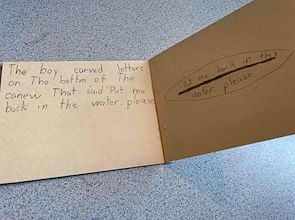 The boy carved letters
on The bottm of The
canew That said "Put me
back in the water. please
Put me back in the
water please